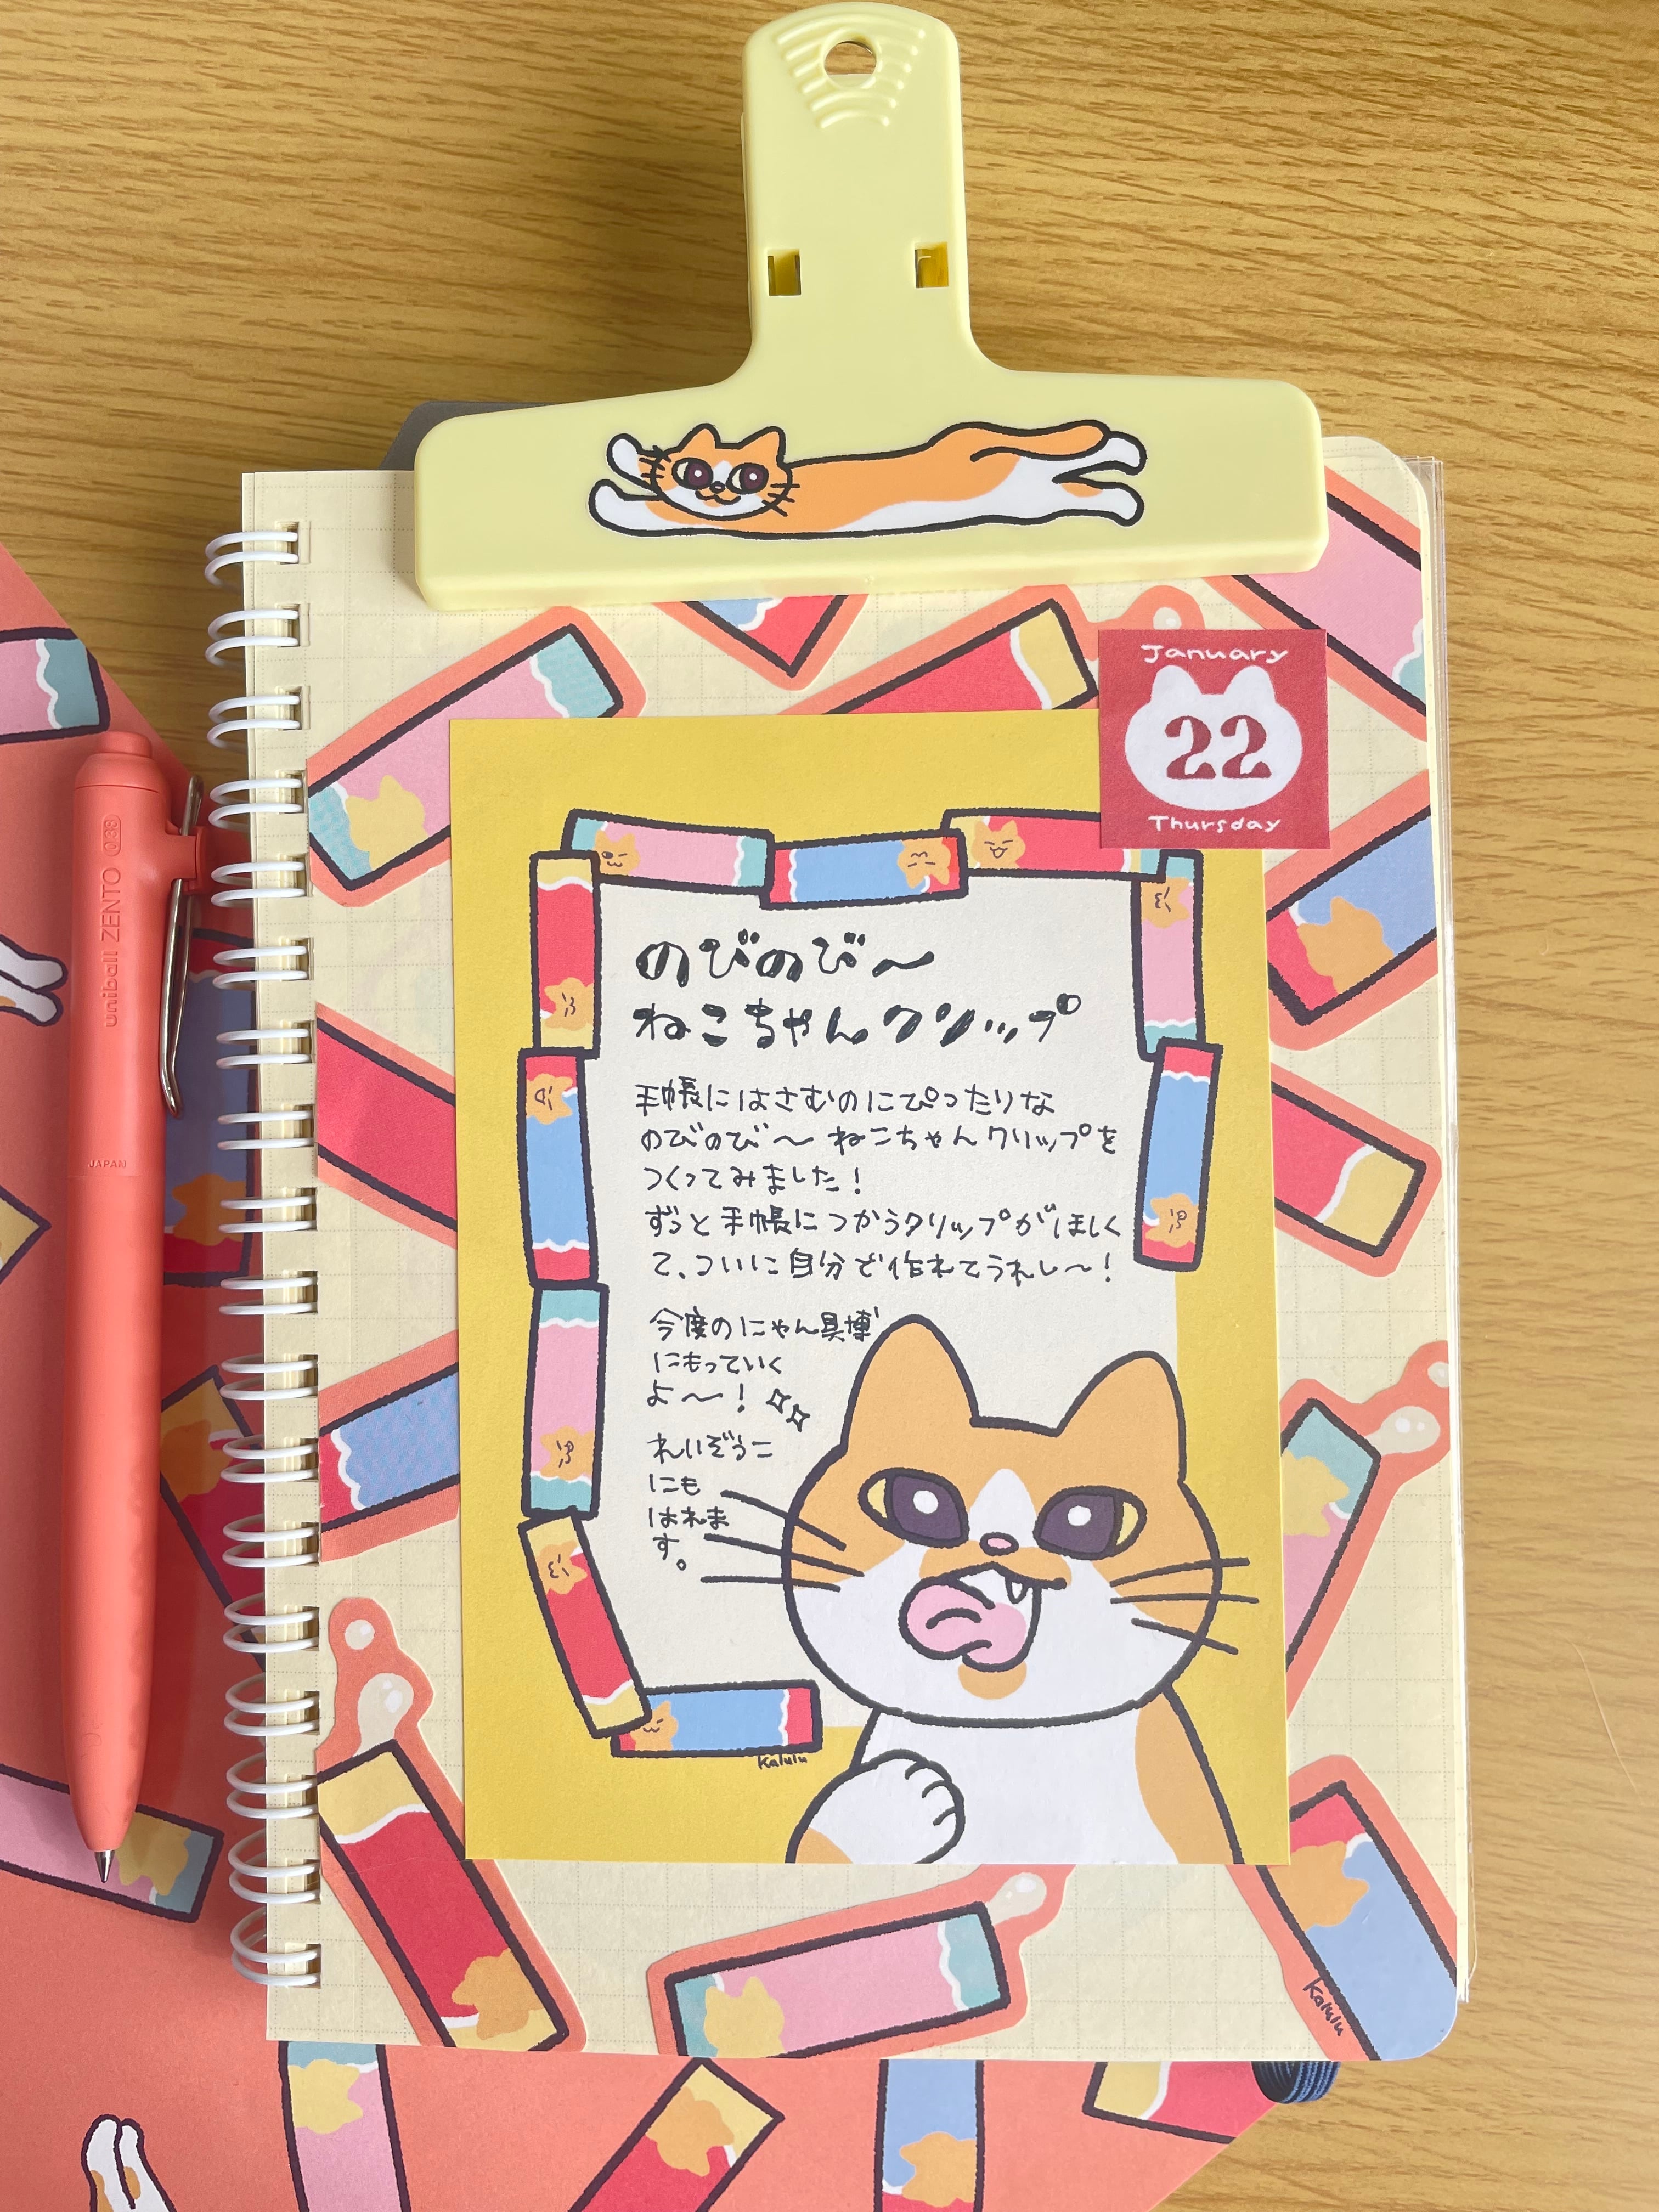 January
22
Thursday
のびのび〜
ねこちゃんクリップ
手帳にはさむのにぴったりな
のびのび〜ねこちゃんクリップを
つくってみました！
ずっと手帳につかうクリップがほしく
て、ついに自分で作れてうれし〜！
今度のにゃん具博
にもっていく
よ〜！
れいぞうこ
にも
はれま
す。
Kalulu
Kalulu
uniball ZENTO 0.38
JAPAN